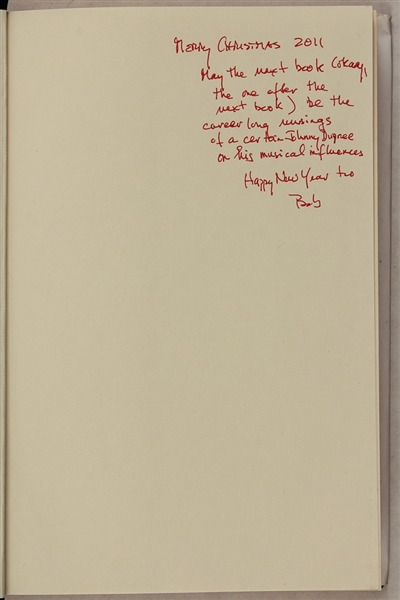 Merry Christmas 2011
May the next book (okay,
the one after the
next book) be the
career long musings
of a certain Johnny Dupree
on his musical influences
Happy New Year too
Bob